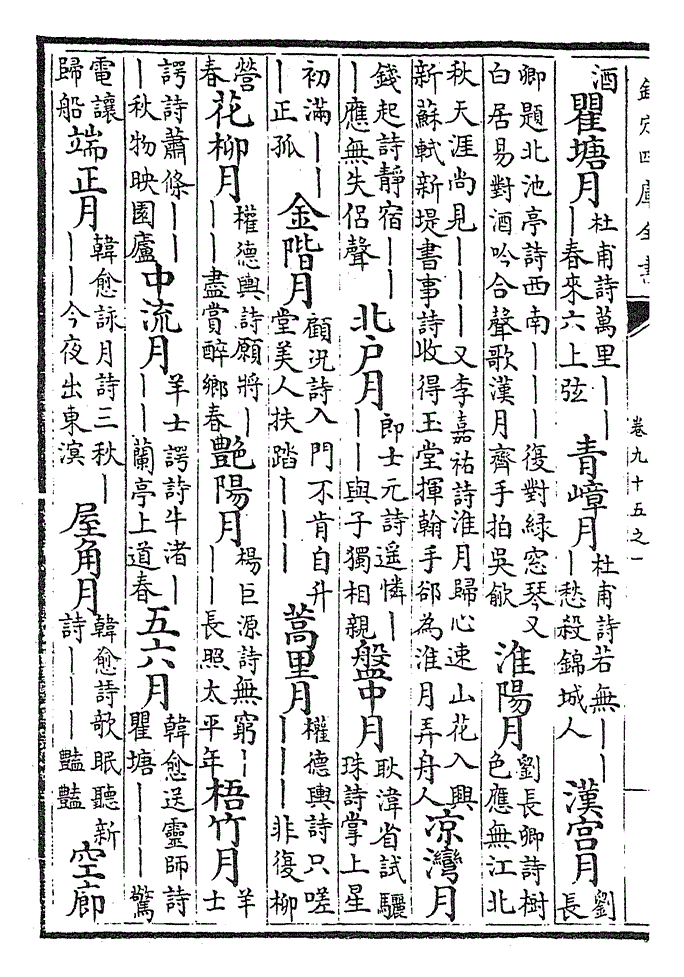 欽定四庫全書 卷九十五之一
酒瞿塘月杜甫詩萬里｜｜｜春來六上弦青嶂月杜甫詩若無｜｜｜愁殺錦城人漢宮月劉長
卿題北池亭詩西南｜｜｜復對緑窓琴又白居易對酒吟合聲歌漢月齊手拍吳歈淮陽月劉長卿詩樹色應無江北
秋天涯尚見｜｜｜又李嘉祐詩淮月歸心速山花入興新蘇軾新堤書事詩收得玉堂揮翰手郤為淮月弄舟人凉灣月
錢起詩靜宿｜｜｜應無失侶聲北户月郎士元詩遥憐｜｜｜與子獨相親盤中月耿湋省試驪珠詩掌上星
初滿｜｜｜正孤金階月顧況詩入門不肯自升堂美人扶踏｜｜｜蒿里月權德輿詩只嗟｜｜｜非復柳
營春花柳月權德輿詩願將｜｜｜盡賞醉鄉春艶陽月楊巨源詩無窮｜｜｜長照太平年梧竹月羊士
諤詩蕭條｜｜｜秋物映園廬中流月羊士諤詩牛渚｜｜｜蘭亭上道春五六月韓愈送靈師詩瞿塘｜｜｜驚
電讓歸船端正月韓愈詠月詩三秋｜｜｜今夜出東溟屋角月韓愈詩歌眠聽新詩｜｜｜豔豔空廊